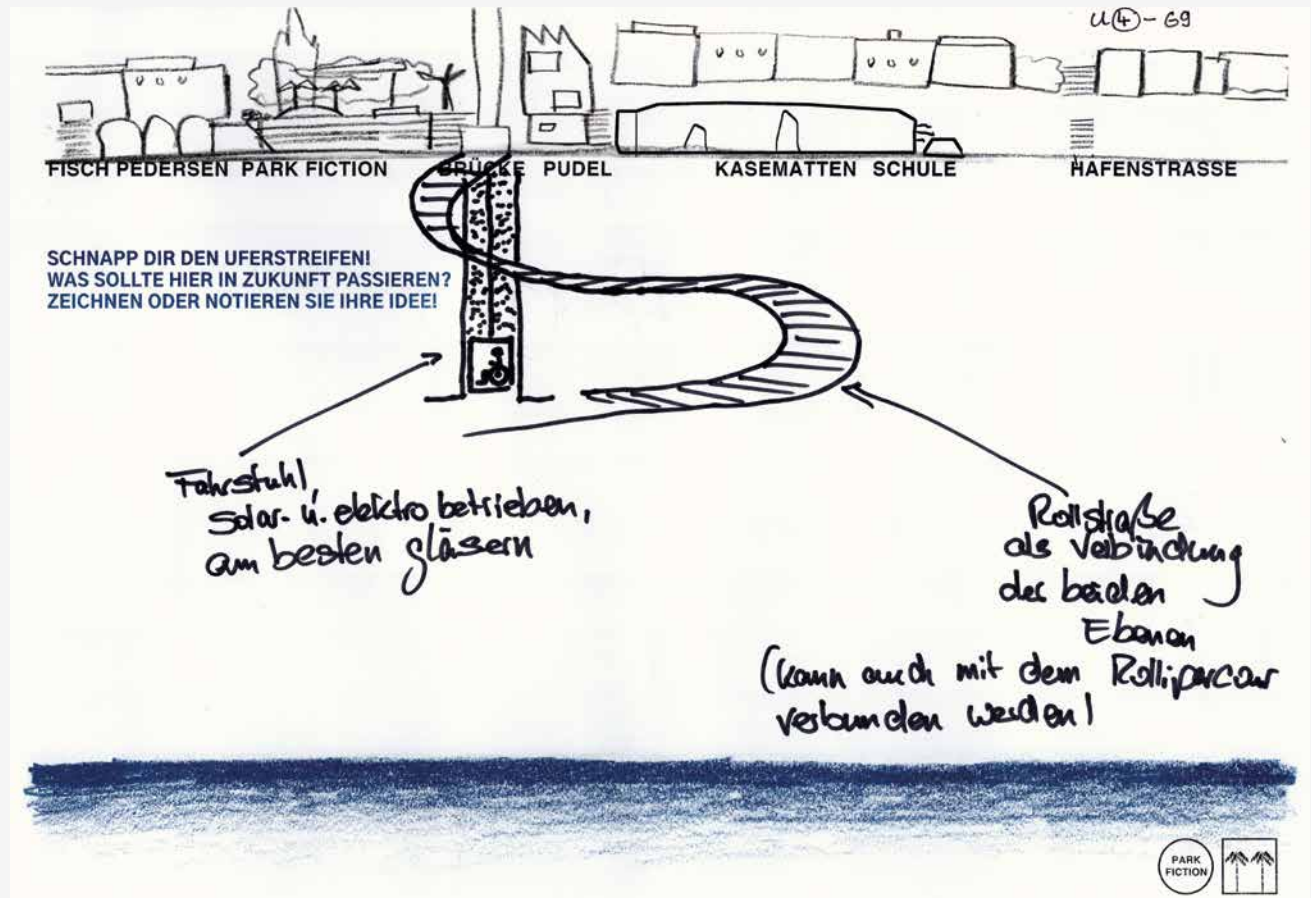 U④-69
FISCH PEDERSEN PARK FICTION BRÜCKE PUDEL KASEMATTEN SCHULE HAFENSTRASSE
SCHNAPP DIR DEN UFERSTREIFEN!
WAS SOLLTE HIER IN ZUKUNFT PASSIEREN?
ZEICHNEN ODER NOTIEREN SIE IHRE IDEE!
Fahrstuhl,
Solar- u. elektro betrieben,
am besten gläsern
Rollstraße
als Verbindung
der beiden
Ebenen
(kann auch mit dem Rolliparcour
verbunden werden)
PARK
FICTION